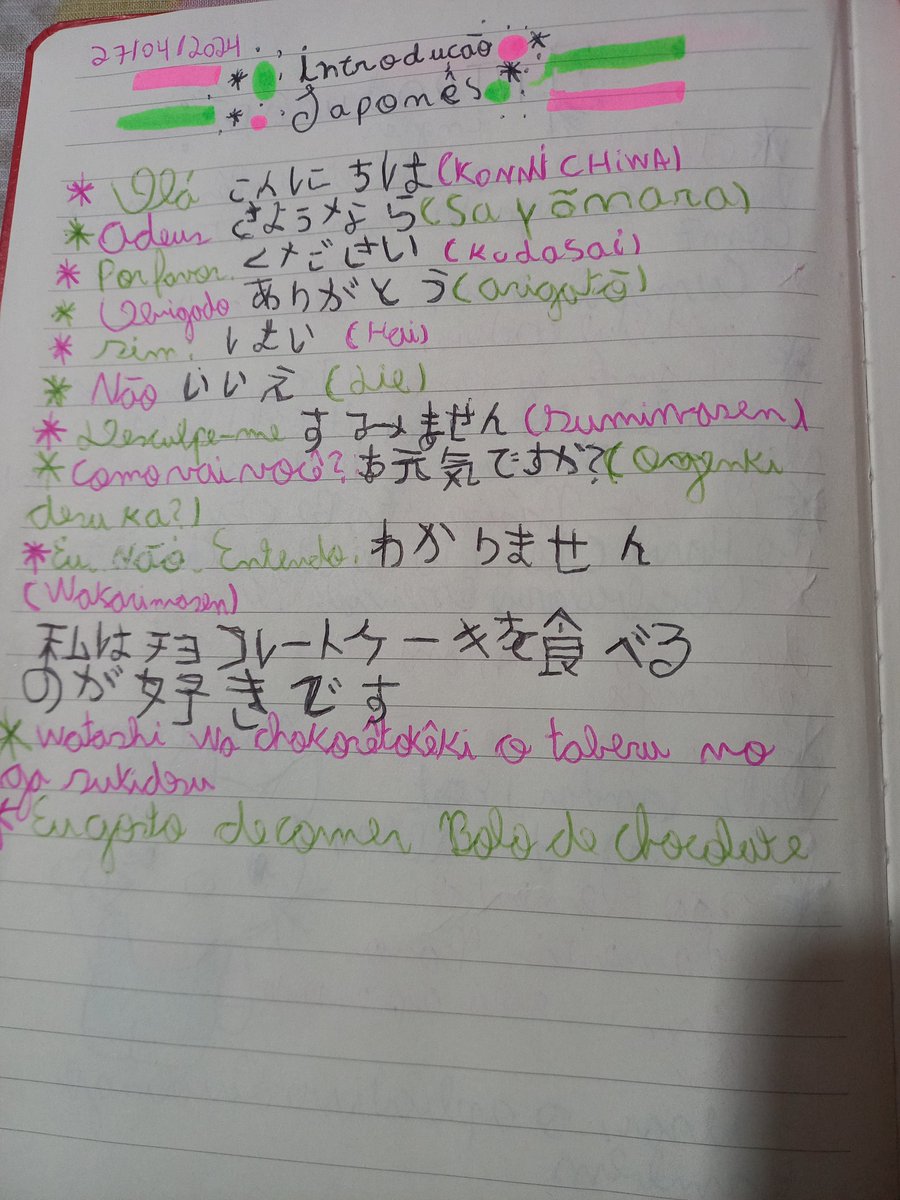 27/04/2024 Introdução
Japonês
* Olá こんにちは (KONNICHIWA)
* Adeus さようなら (Sayōnara)
* Por favor. ください (Kudasai)
* Obrigado ありがとう (arigatō)
* Sim. はい (Hai)
* Não いいえ (iie)
* Desculpe-me すみません (suminasen)
* Como vai você? お元気ですか? (Ogenki
desu ka?)
* Eu Não Entendo. わかりません
(Wakarimasen)
私はチョコレートケーキを食べる
のが好きです
* watashi wa chokorētokēki o taberu no
ga sukidesu
* Eu gosto de comer Bolo de chocolate